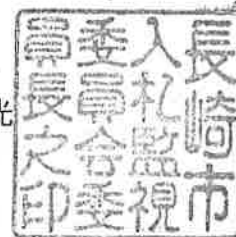 光
長崎市
入札監視
委員会委
員長之印